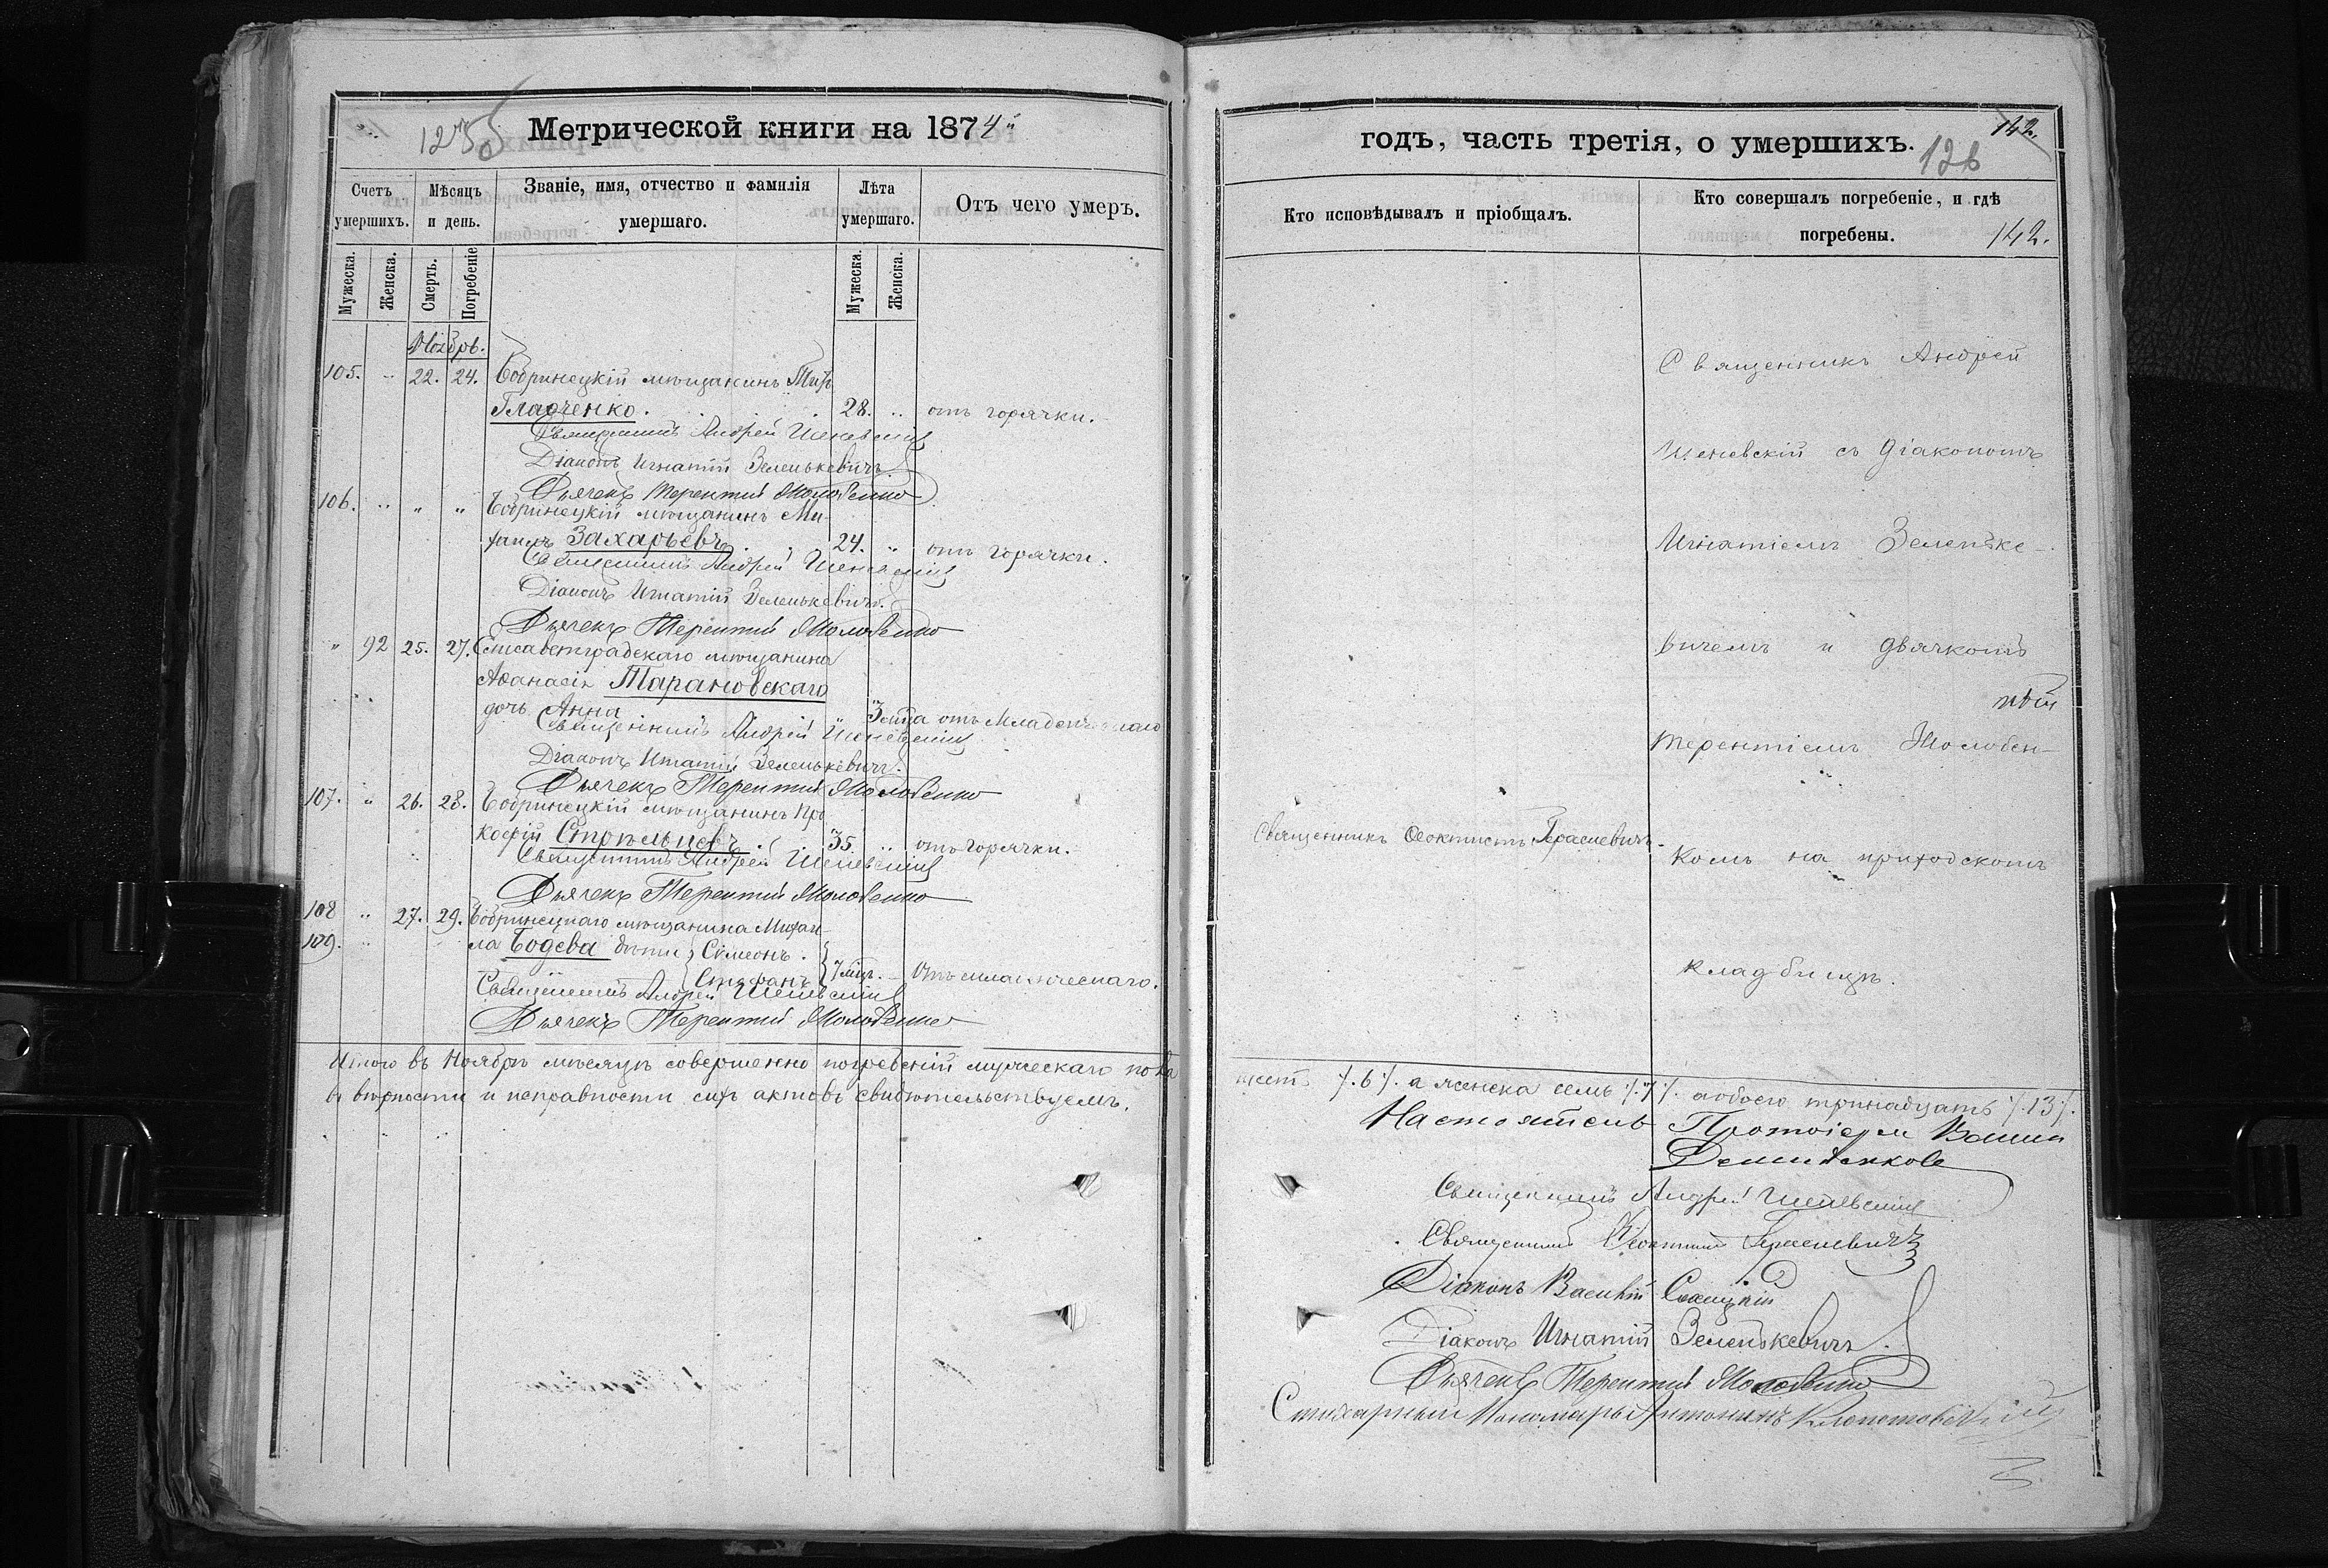 Метрической книги на 1874й
Счетъ умершихъ.
Мѣсяцъ и день.
Званіе, имя, отчество и фамилія умершаго.
Лѣта умершаго.
Отъ чего умеръ.
Мужеска.
Женска.
Смерть.
Погребеніе
Мужеска.
Женска.
Ноябрь.
105. " 22. 24. Бобринецкій мѣщанинъ
Гладченко. 28. " отъ горячки.
Священникъ Андрей Шеневскій
Діаконъ Игнатій Зеленькевичъ
Дьячекъ Терентий Молобенко
106. " " " Бобринецкій мѣщанинъ Ми-
хаилъ Захарьевъ. 24. " отъ горячки.
Священникъ Андрей Шеневскій
Діаконъ Игнатій Зеленькевичъ.
Дьячекъ Терентий Молобенко
" 92 25. 27. Елисаветградскаго мѣщанина
Аѳанасія Тарановскаго
дочь Анна " 3 отъ Младенческаго
Священникъ Андрей Шеневскій
Діаконъ Игнатій Зеленькевичъ.
Дьячекъ Терентий Молобенко
107. " 26. 28. Бобринецкій мѣщанинъ Про
кофій Стрѣльцовъ. 35. " отъ горячки.
Священникъ Андрей Шеневскій
Дьячекъ Терентий Молобенко
108 " 27. 29. Бобринецкаго мѣщанина Михаи-
109. " ла Бодева дѣти Симеонъ.
Стефанъ 7 мѣц. Отъ младенческаго.
Священникъ Андрей Шеневскій
Дьячекъ Терентий Молобенко
Итого въ Ноябрѣ мѣсяцѣ совершенно погребеній мужескаго пола
въ вѣрности и исправности сихъ актовъ свидѣтельствуемъ.
годъ, часть третія, о умершихъ.
142.
126
Кто исповѣдывалъ и пріобщалъ.
Кто совершалъ погребеніе, и гдѣ погребены.
142.
Священникъ Андрей
Шеневскій съ Діакономъ
Игнатіемъ Зеленьке-
вичемъ и Дьячкомъ
Терентіемъ Молобен-
Священникъ Ѳеоктистъ Герасиевичъ.
комъ на приходскомъ
кладбищѣ.
шесть /.6/. а женска семь /.7/. а обоего тринадцать /.13/.
Настоятель Протоіерей
Священникъ Андрей Шеневскій
Священникъ Ѳеоктистъ Герасиевичъ
Діаконъ Василій
Діаконъ Игнатій Зеленькевичъ.
Дьячекъ Терентий Молобенко
Стихарный Пономарь Антонинъ